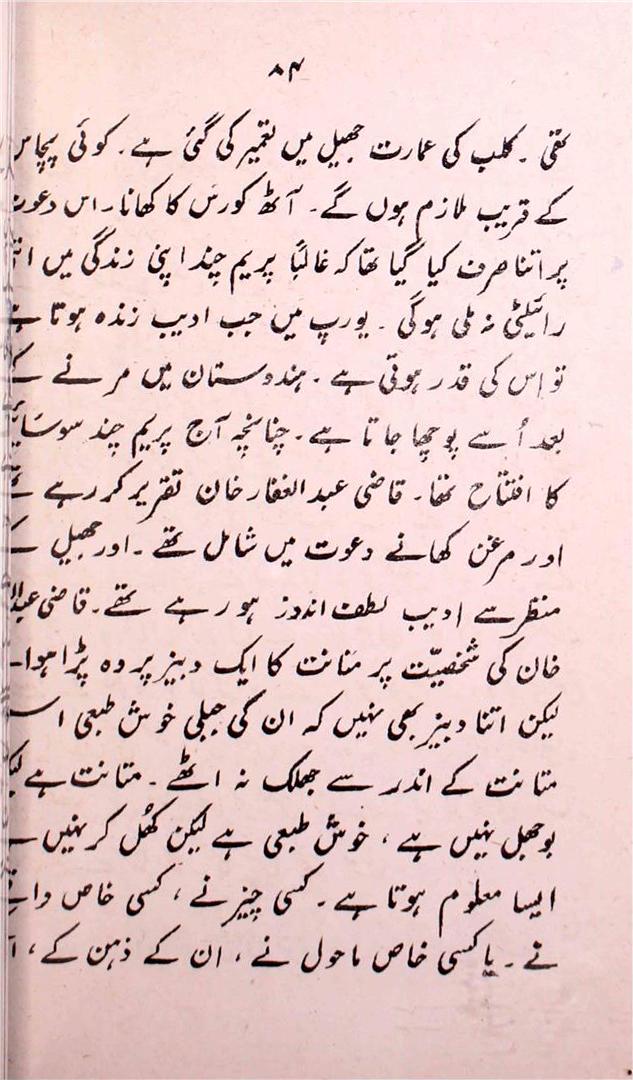 ۸۴
تھی ۔ کلب کی عمارت جھیل میں تعمیر کی گئی ہے ۔ کوئی پچاس
کے قریب ملازم ہوں گے ۔ آٹھ کورس کا کھانا ۔ اس دعوت
پر اتنا صرف کیا گیا تھا کہ غالباً پریم چند اپنی زندگی میں
رائیلٹی نہ ملی ہوگی ۔ یورپ میں جب ادیب زندہ ہوتا ہے
تو اس کی قدر ہوتی ہے ۔ ہندوستان میں مرنے کے
بعد اُسے پوچھا جاتا ہے ۔ چنانچہ آج پریم چند
کا افتتاح تھا ۔ قاضی عبدالغفار خان تقریر کر رہے تھے
اور مرغن کھانے دعوت میں شامل تھے ۔ اور جھیل کے
منظر سے ادیب لطف اندوز ہو رہے تھے ۔ قاضی
خان کی شخصیّت پر متانت کا ایک دبیز پردہ پڑا ہوا
لیکن اتنا دبیز بھی نہیں کہ ان کی جبلی خوش طبعی
متانت کے اندر سے جھلک نہ اٹھے ۔ متانت ہے
بوجھل نہیں ہے ، خوش طبعی ہے لیکن کھُل کر نہیں
ایسا معلوم ہوتا ہے ۔ کسی چیز نے ، کسی خاص
نے ۔ یا کسی خاص ماحول نے ، ان کے ذہن کے ،